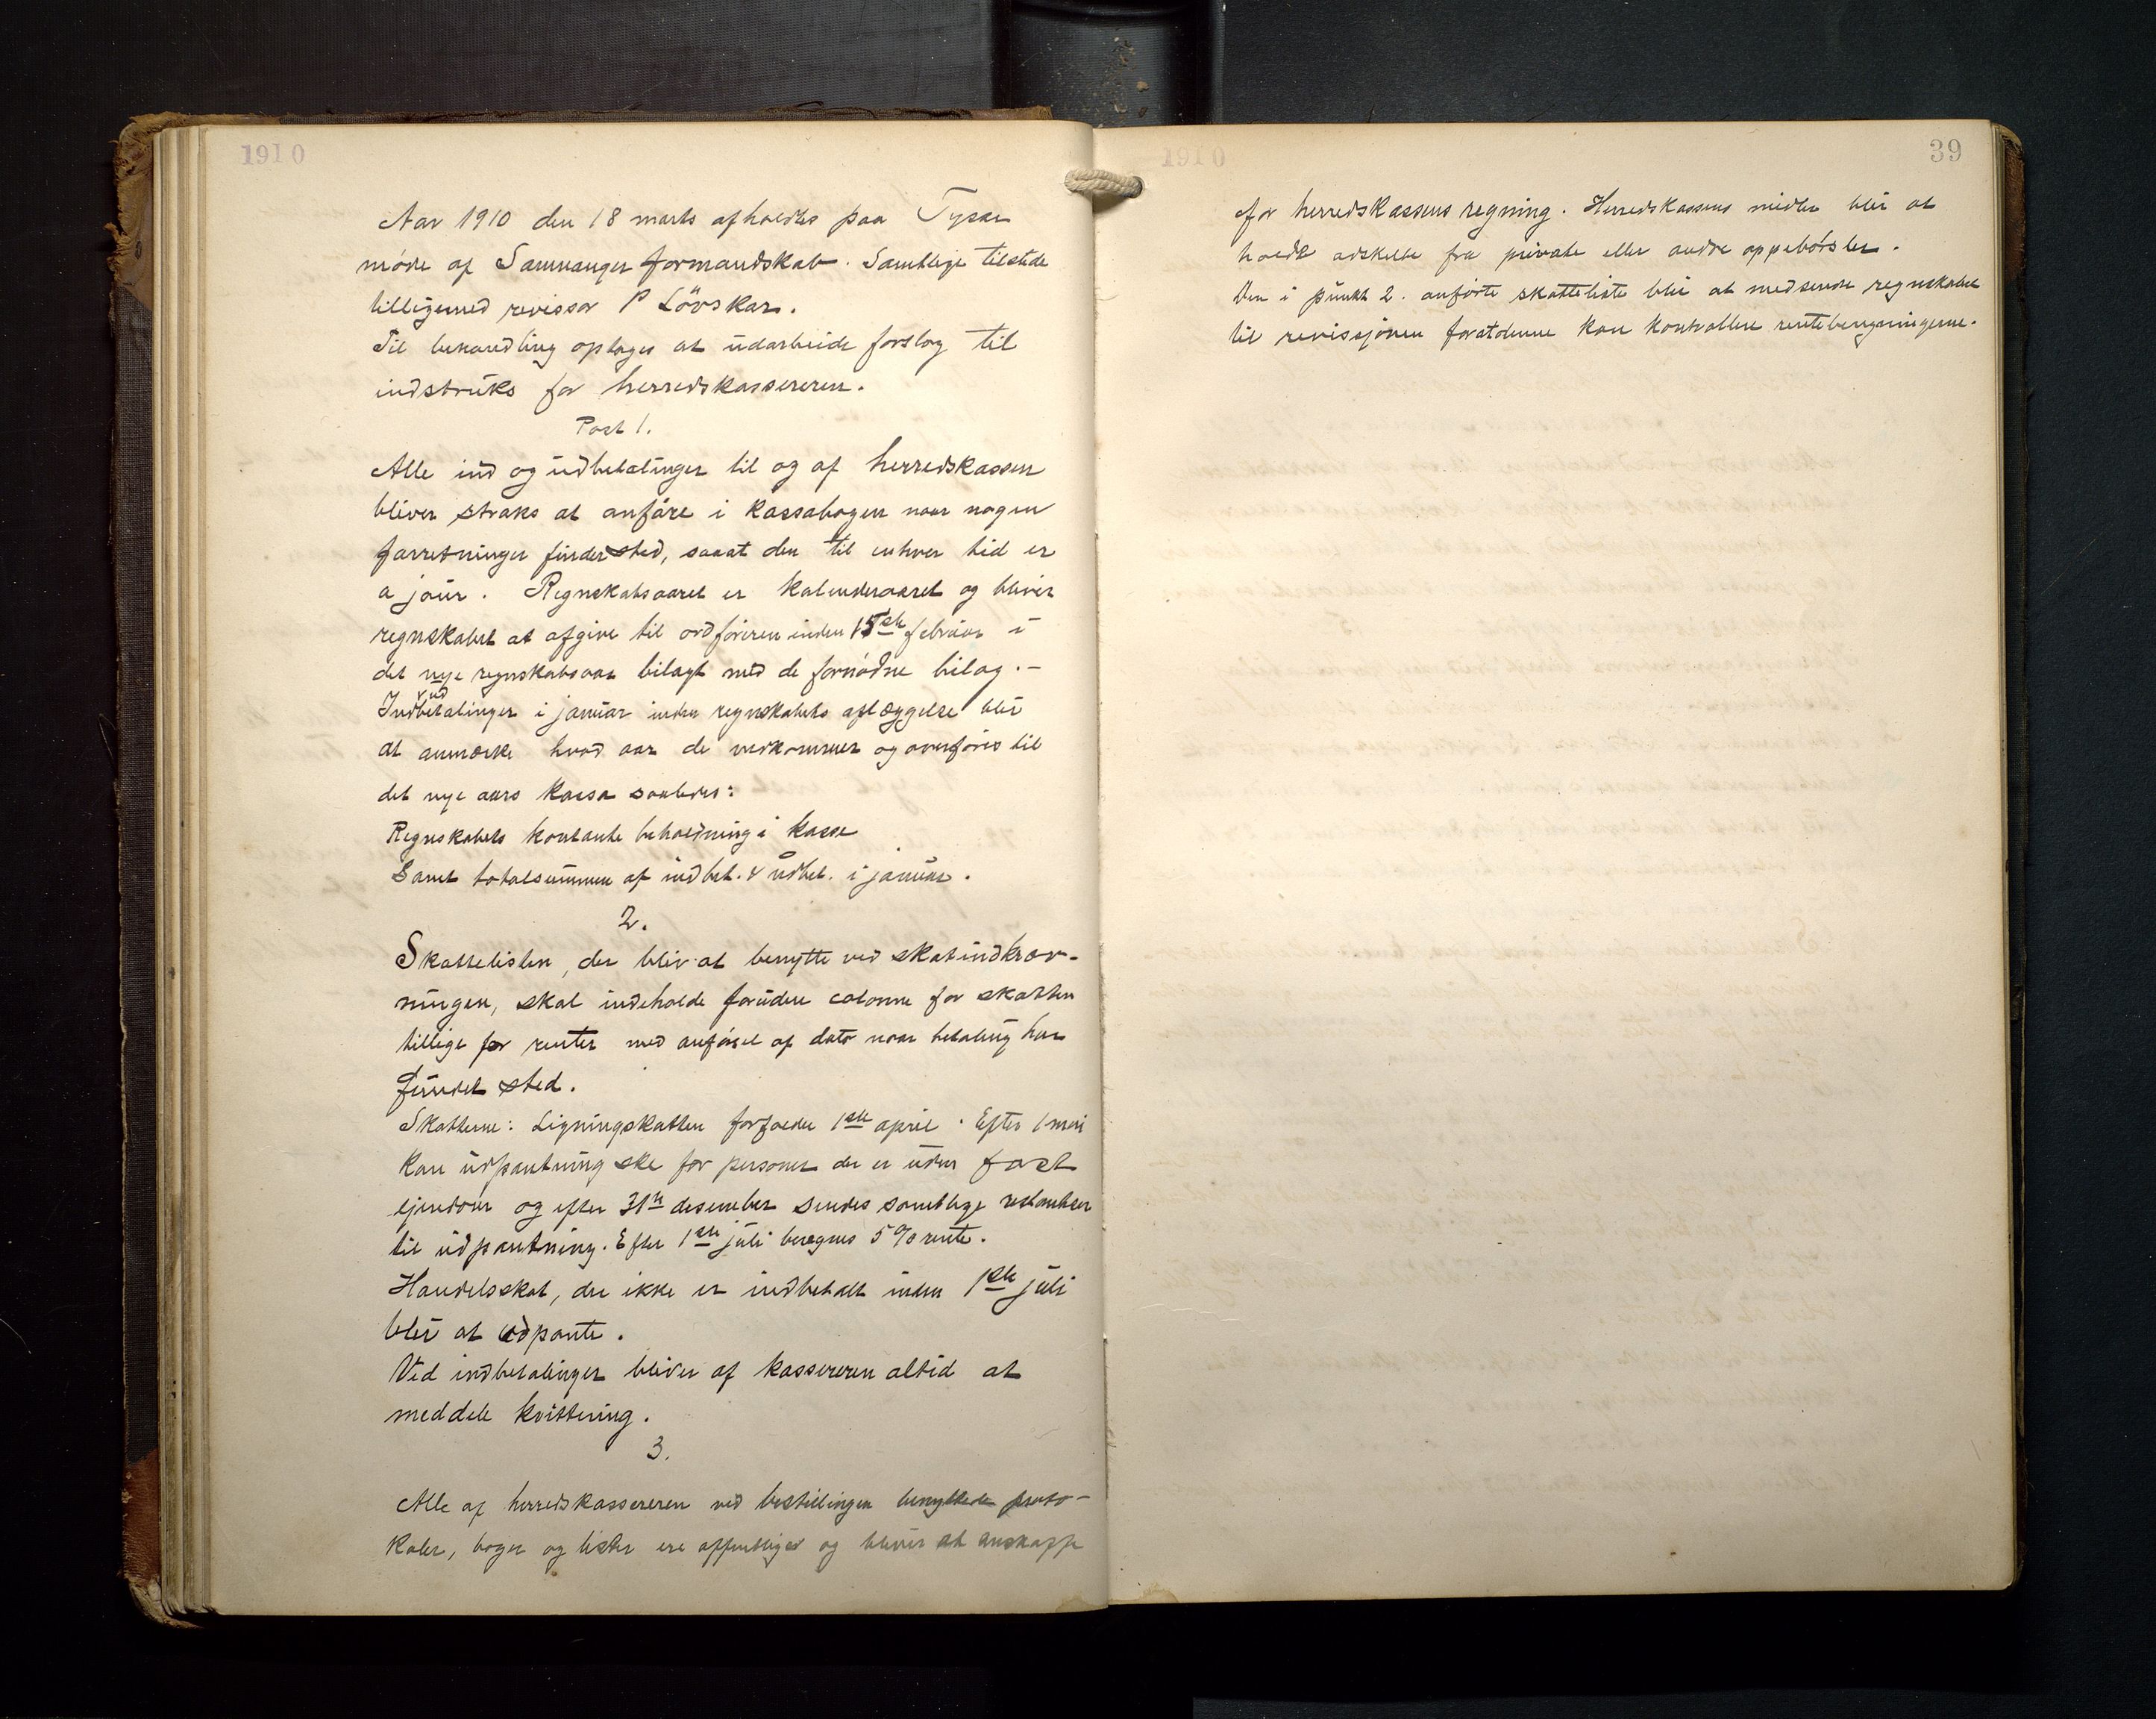 1910
Aar 1910 den 18 marts afholdtes paa Tysse
møde af Samnanger formandskab. Samtlige tilstede
tilligemed revisor P Lövskar.
Til behandling optoges at udarbeide forslag til
indstruks for herredskassereren.
Post 1.
Alle ind og udbetalinger til og af herredskassen
bliver straks at anføre i kassabogen naar nogen
forretninger finder sted, saaat den til enhver tid er
a jour. Regnskabsaaret er kalenderaaret og bliver
regnskabet at afgive til ordføreren inden 15de februar i
det nye regnskabsaar bilagt med de fornødne bilag.-
ud
Indbetalinger i januar inden regnskabets aflæggelse blir
at anmerke hvad aar de vedkommer og overføres til
det nye aars kassa saaledes:
Regnskabets kontante beholdning i kasse
Samt totalsummen af indbet. & udbet. i januar.
2.
Skattelisten, der bliv at benytte ved skatindkræv-
ningen, skal indeholde foruden colonne for skatten
tillige for renter med anførsel af dato naar betaling har
fundet sted.
Skatterne: Ligningskatten forfalder 1ste april. Efter 1 mai
kan udpantning ske for personer der er uden fast
ejendom og efter 31te desember sendes samtlige restantser
til udpantning. Efter 1ste juli beregnes 5% rente.
Handelsskat, der ikke er indbetalt inden 1ste juli
blir at udpante.
Ved indbetalinger bliver af kassereren altid at
meddele kvittering.
3.
Alle af herredskassereren ved bestillingen benyttede proto-
koler, bøger og lister ere offentlige og bliver at anskaffe
1910
39
for herredskassens regning. Herredskassens midler blir at
holde adskelte fra private eller andre oppebørsler.
Den i punkt 2. anførte skatteliste blir at medsende regnskabet
til revisjonen foratdenne kan kontrollere renteberegningerne.